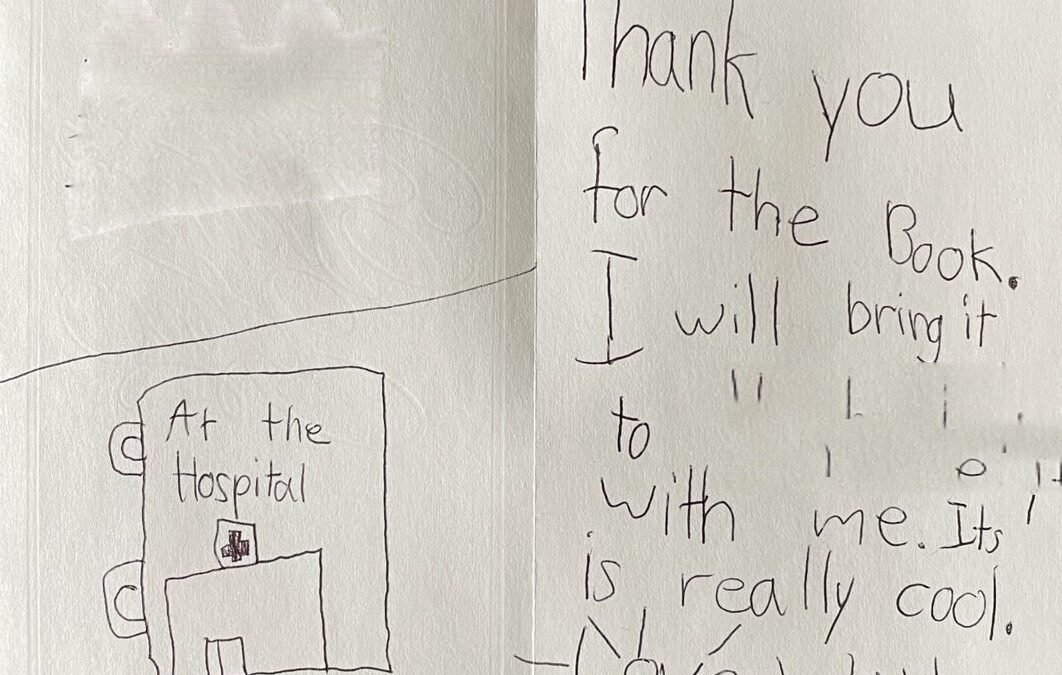 At the
Hospital
Thank you
for the Book.
I will bring it
to
with me. Its
is really cool.